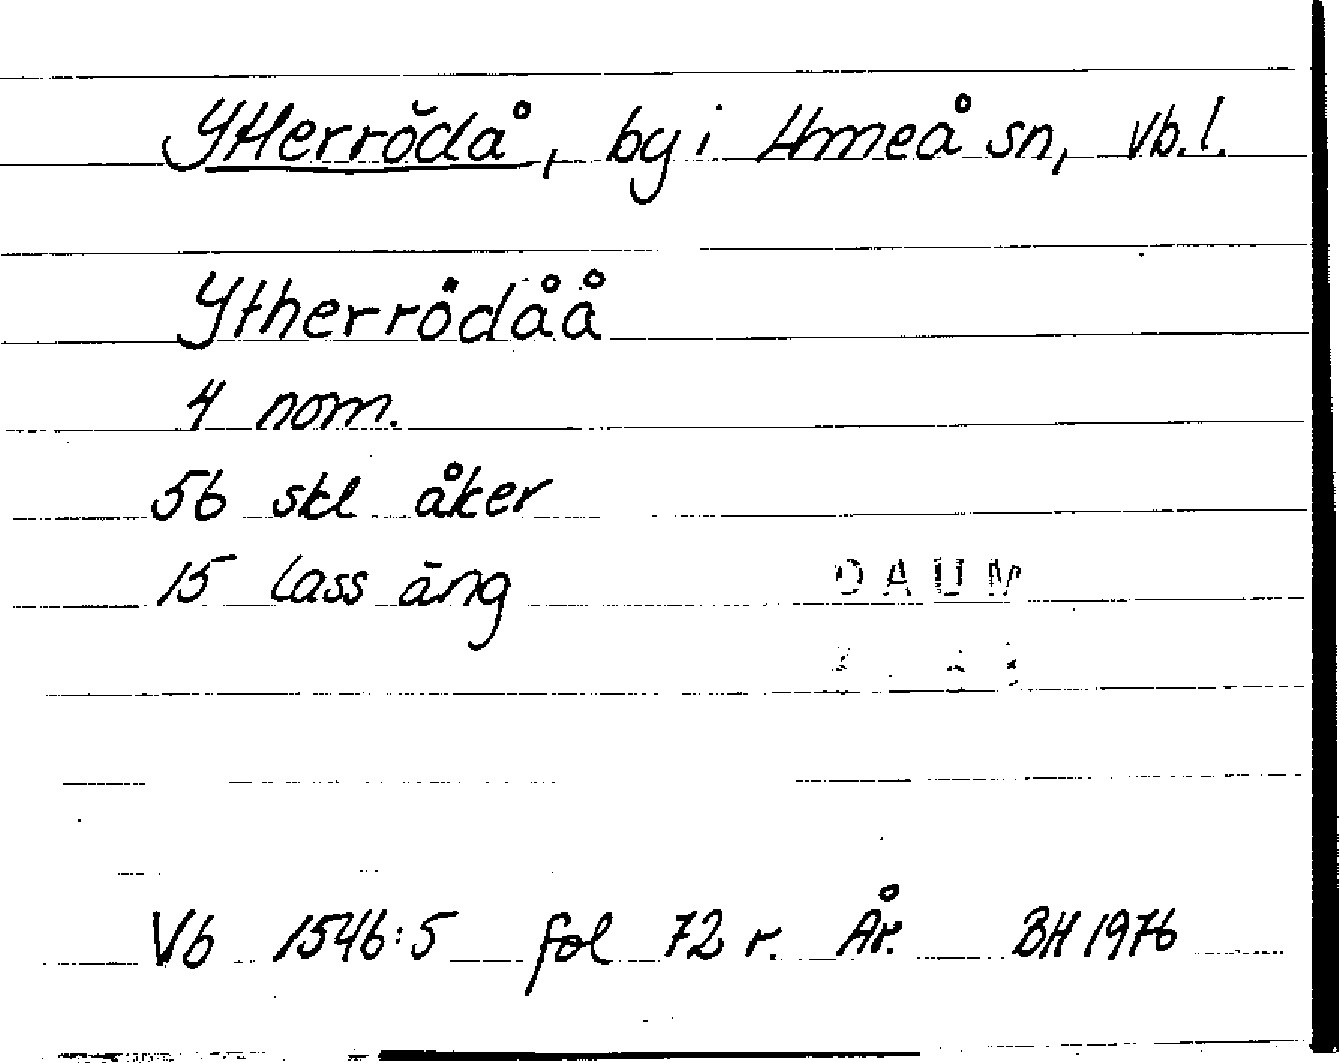 Ytterrödå, by i Umeå sn, Vb.l.
Ytherrödåå
4 nom.
56 skl åker
15 lass äng
DAUM
Vb 1546:5 fol 72 r. År. BH 1976